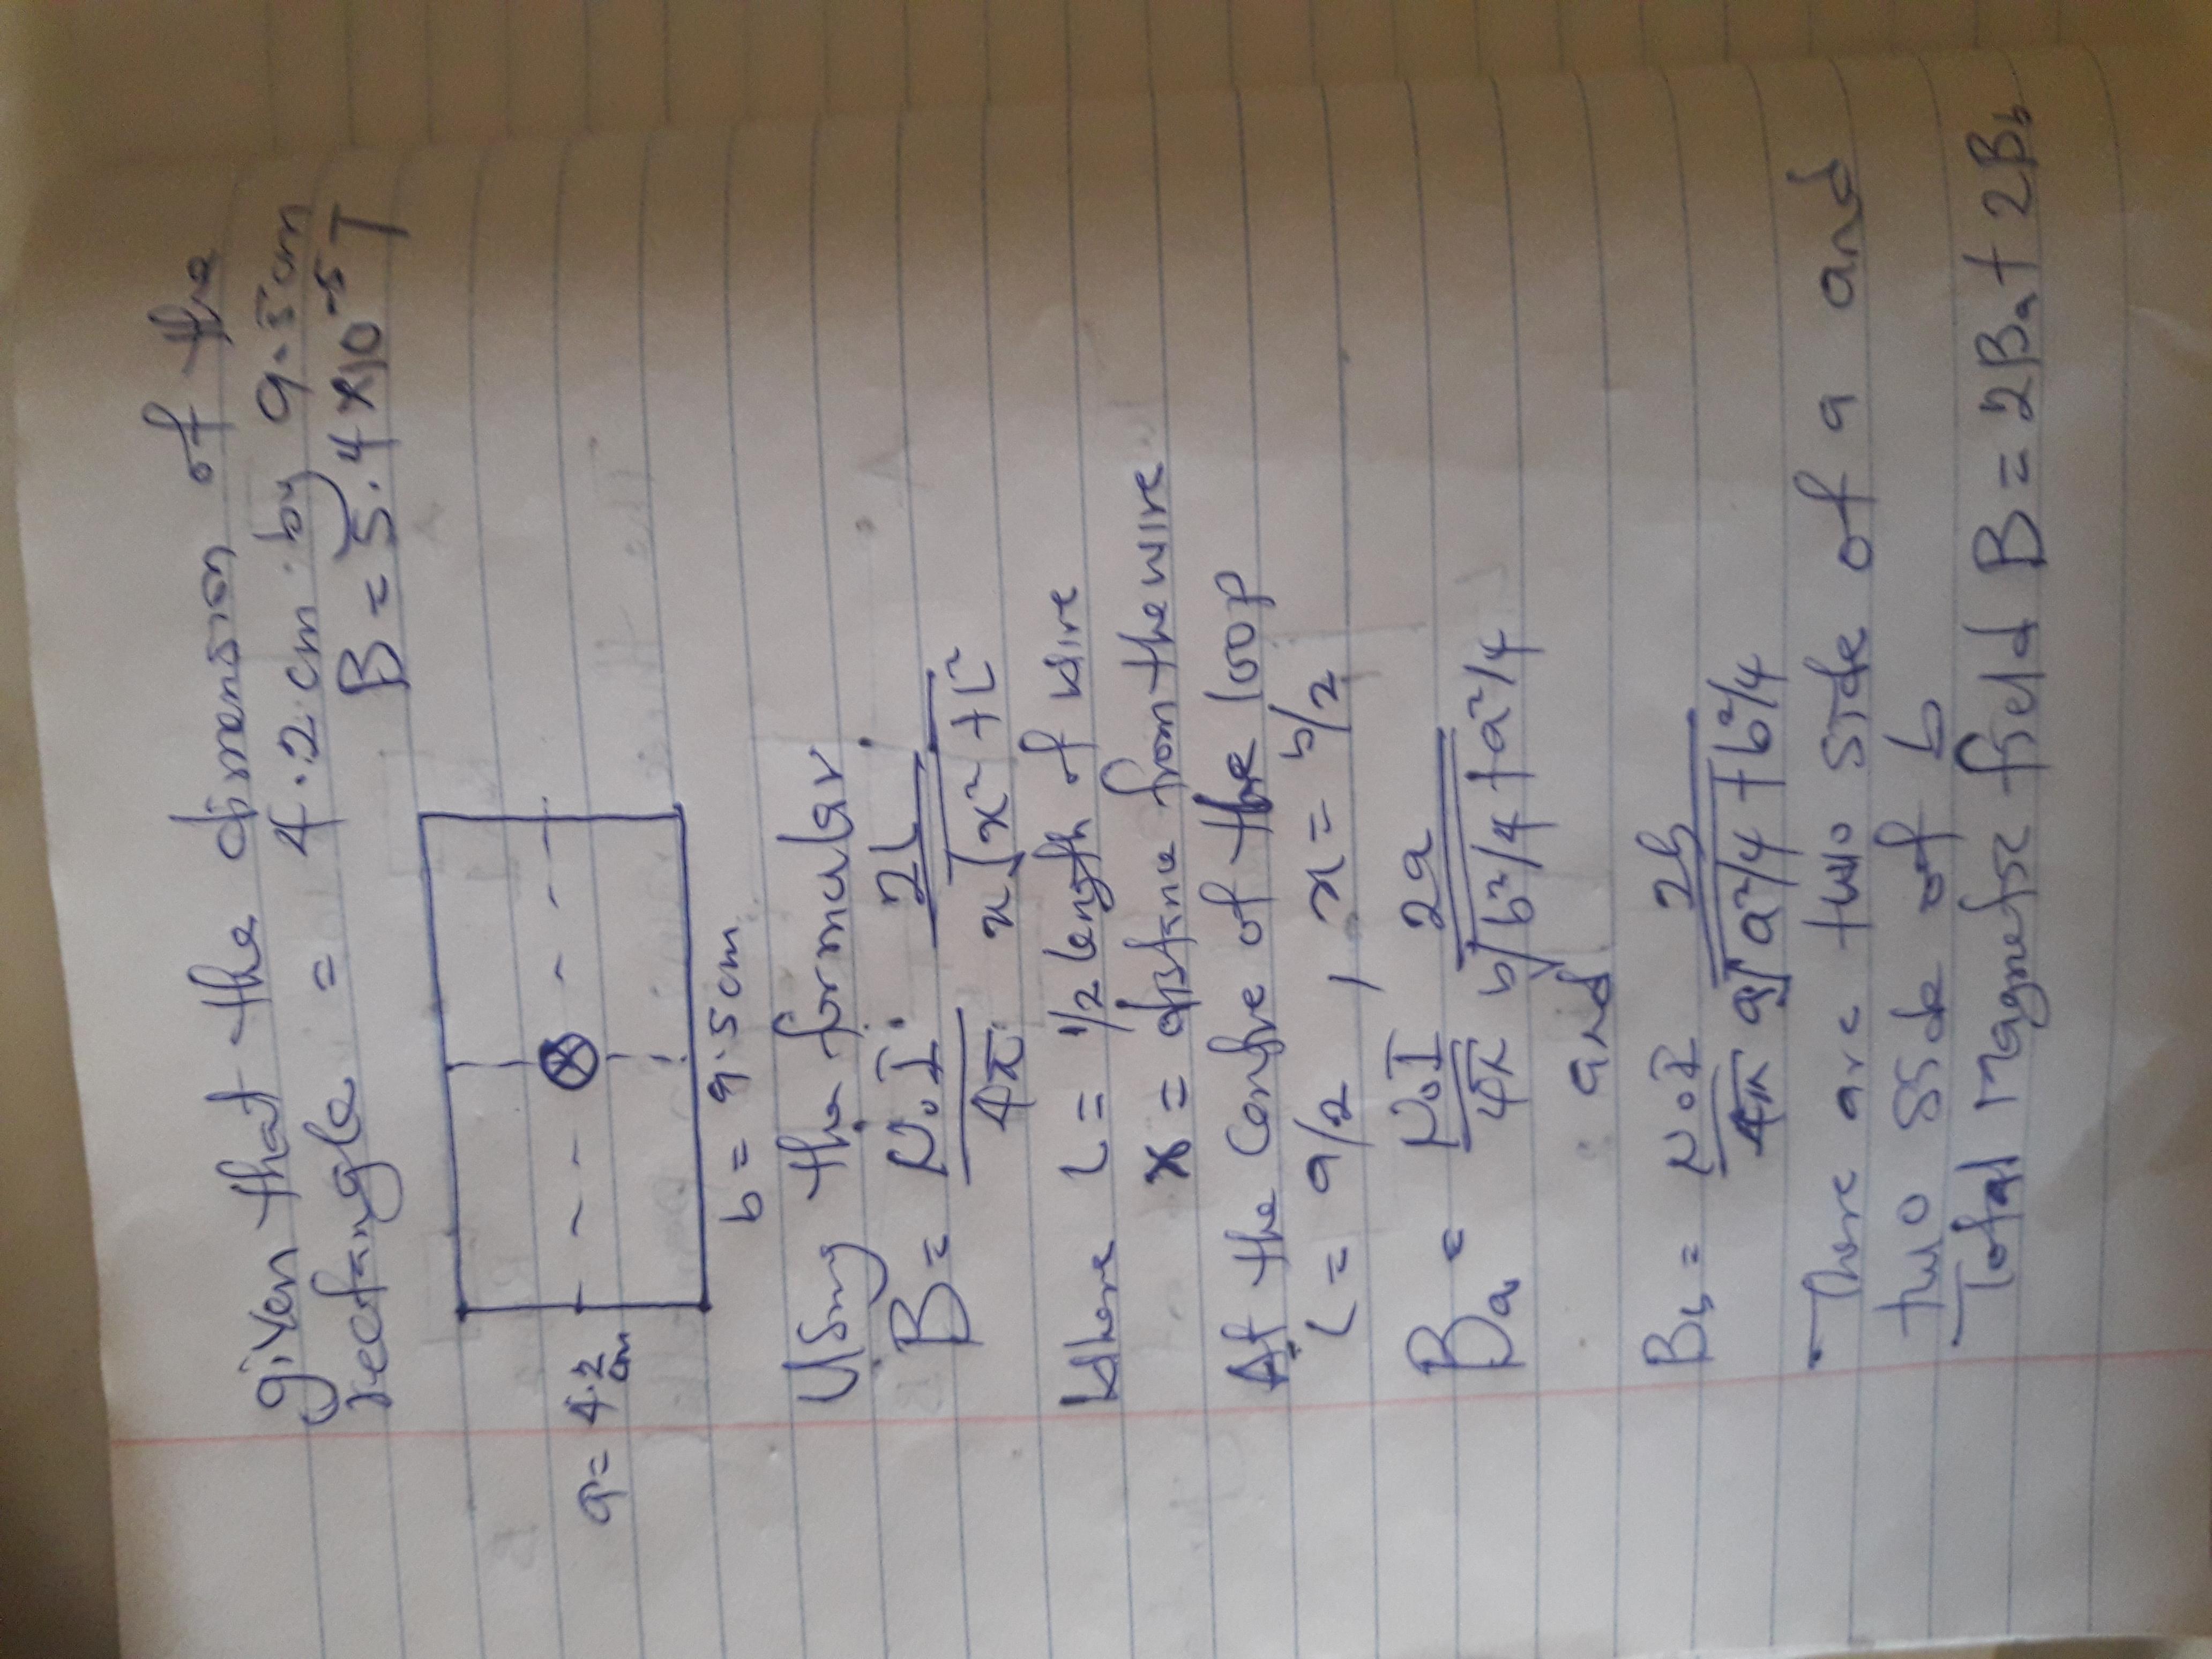 given that the dimension of the
rectangle = 4.2 cm by 9.5cm
B = 5.4 x10⁻⁵ T
a = 4.2
cm
b = 9.5 cm
Using the formular
B = μ₀I/4π 2L/x√x²+L²
Where L = 1/2 length of wire
x = distance from the wire
At the Centre of the loop
L = a/2 , x = b/2
Ba = μ₀I/4π 2a/b√b²/4+a²/4
and
Bb = μ₀I/4π 2b/a√a²/4+b²/4
There are two side of a and
two side of b
Total Magnetic field B = 2Ba + 2Bb